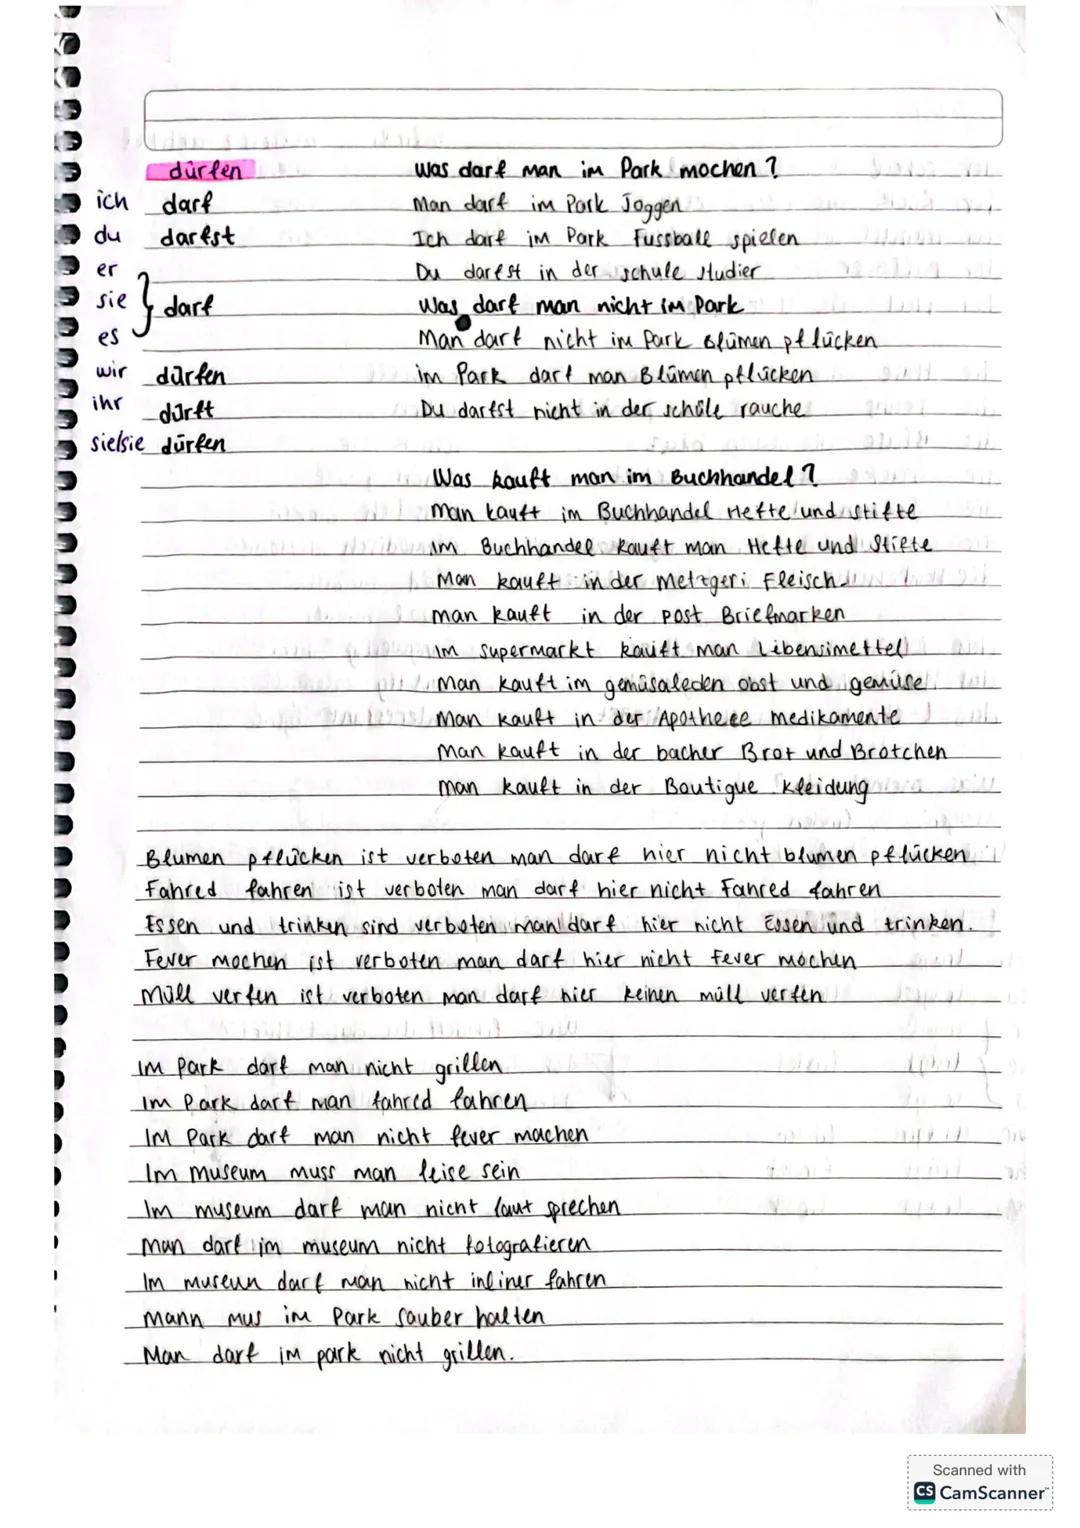 dürfen Was darf man im Park mochen?
ich darf Man darf im Park Joggen
du darfst Ich darf im Park Fussball spielen
er Du darfst in der schule studier
sie } darf Was darf man nicht im Park
es Man darf nicht im Park Blümen pflücken
wir dürfen im Park darf man Blümen pflücken
ihr dürft Du darfst nicht in der schüle rauche
sie/sie dürfen
Was kauft man im Buchhandel?
Man kauft im Buchhandel Hefte und stifte
im Buchhandel kauft man Hefte und Stifte
Man kauft in der Metzgeri Fleisch
man kauft in der post Briefmarken
im supermarkt kauft man Libensimettel
Man kauft im gemüsaleden obst und gemüse
Man kauft in der Apothece medikamente
Man kauft in der bacher Brot und Brötchen
Man kauft in der Boutigue kleidung
Blumen pflücken ist verboten man darf hier nicht blumen pflücken
Fahred fahren ist verboten man darf hier nicht Fahred fahren
Essen und trinken sind verboten man darf hier nicht Essen und trinken.
Fever mochen ist verboten man darf hier nicht Fever mochen
Müll verfen ist verboten man darf hier keinen müll verfen
Im Park darf man nicht grillen
Im Park darf man fahred fahren
IM Park darf man nicht fever machen
Im museum muss man leise sein
Im museum darf man nicht laut sprechen
Man darf im museum nicht fotografieren
Im museun darf man nicht inliner fahren
Mann mus im Park sauber halten
Man darf im park nicht grillen.
Scanned with
CS CamScanner